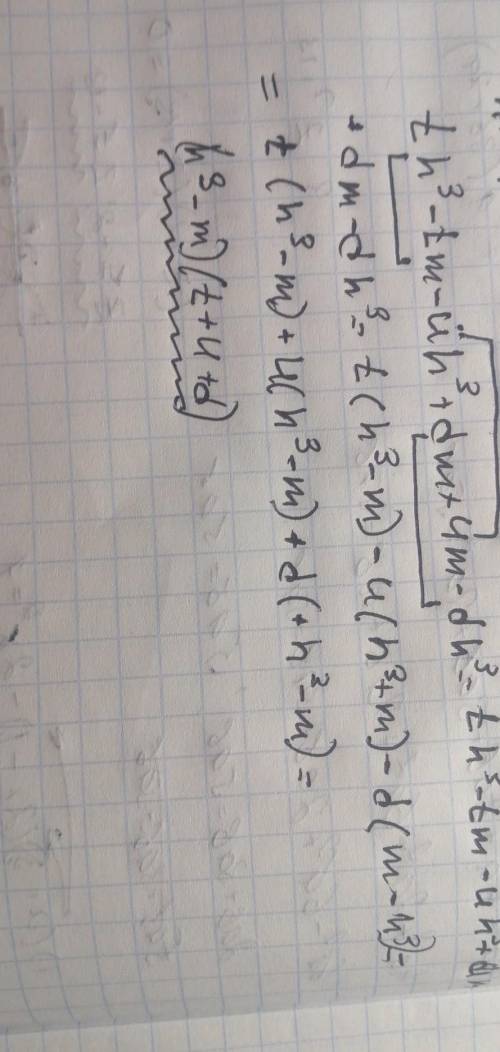 th³-tm-uh³+dm+um-dh³= th³-tm-uh³+um
+dm-dh³= t(h³-m)-u(h³+m)-d(m-h³)=
= t(h³-m)+u(h³-m)+d(+h³-m)=
(h³-m)(t+u+d)